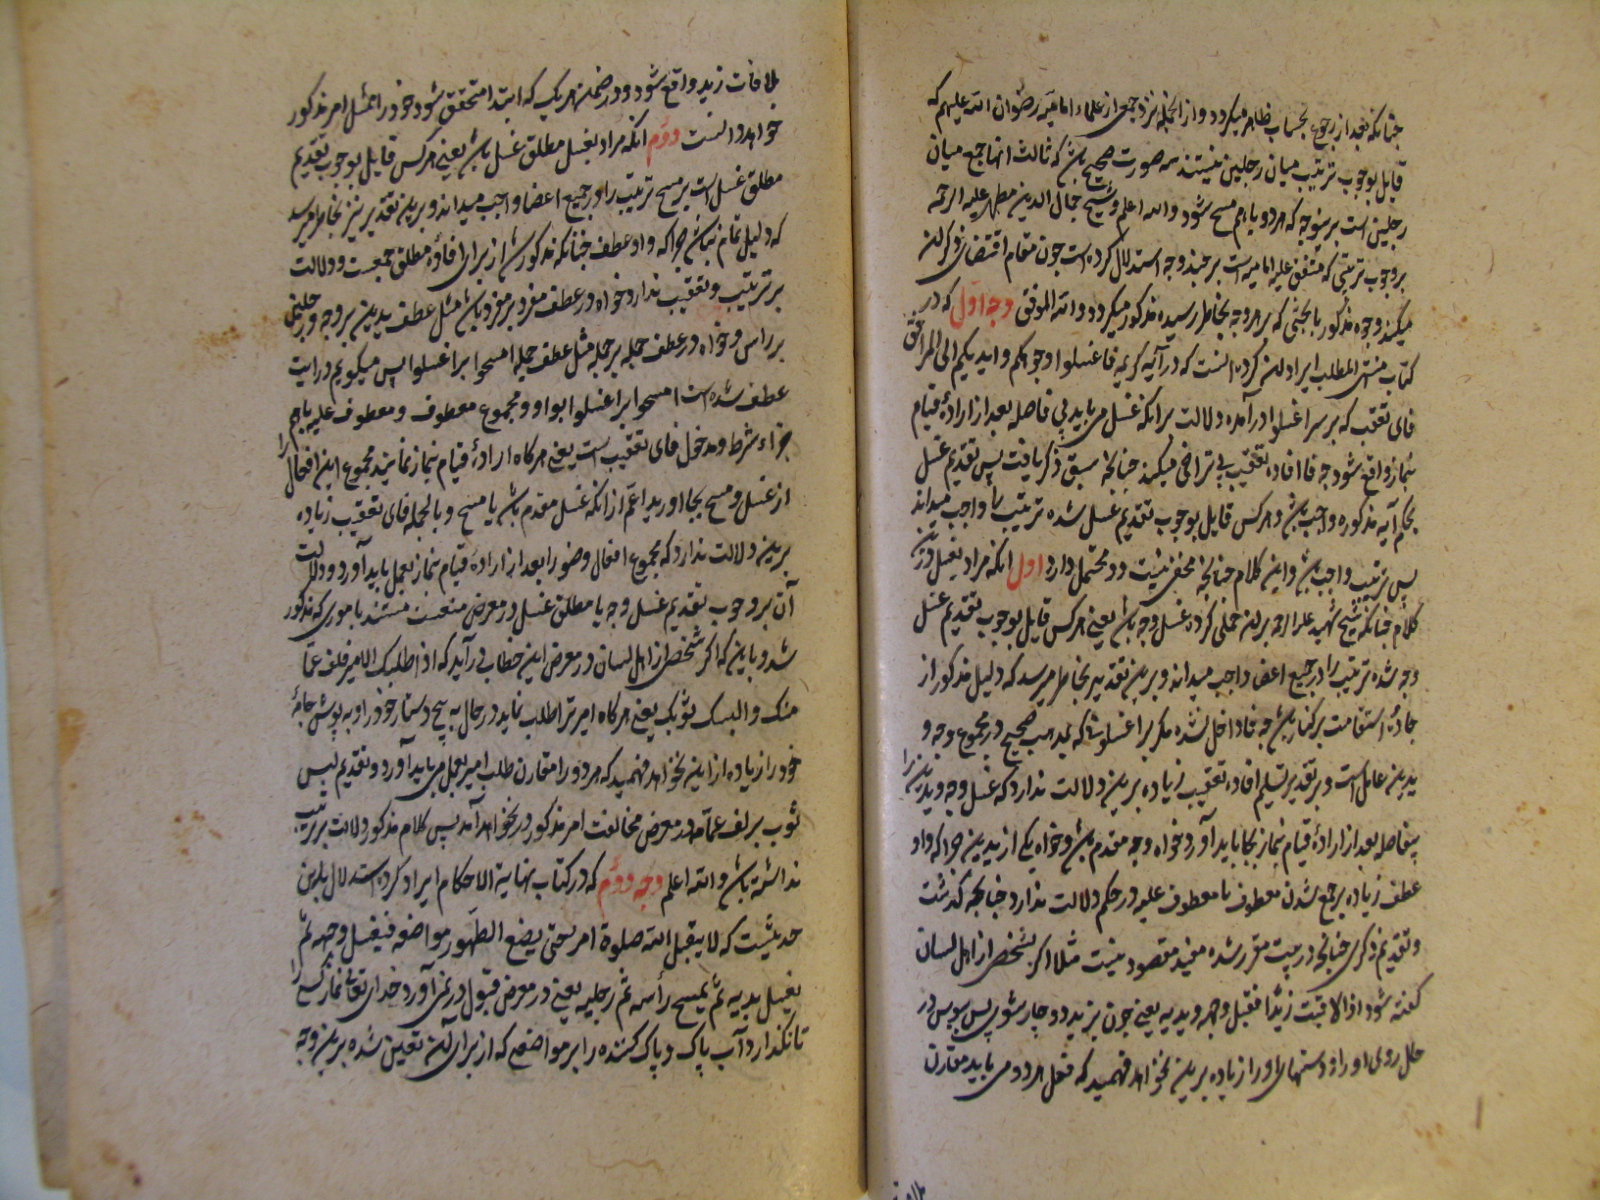 چنانکه بعد از رجوع بحساب ظاهر میکردد و از الجمله نزد جمعی از علماء امامیه رضوان الله علیهم که
قایل بوجوب ترتیب میان رجلین نیستند سه صورت صحیح باشد که ثالث انها جمع میان
رجلین است برینوجه که هر دو با هم مسح شود والله اعلم و شیخ جمال الدین مطهر علیه الرحمه
بر وجوب ترتیبی که متفق علیه امامیه است بر چند وجه استدلال کرده است چون مقام اقتضای ذکر ان
میکند وجوه مذکور با بحثی که بر هر وجه بخاطر رسیده مذکور میکردد والله الموفق وجه اول که در
کتاب منتهی المطلب ایراد ان کرده انست که در آیه کریمه فاغسلوا وجوهکم وایدیکم الی المرافق
فای تعقیب که بر سر اغسلوا در آمده دلالت بر انکه غسل می باید بی فاصله بعد از اراده قیام
بنماز واقع شود چه فا افاده تعقیب بی تراخی میکند چنانچه سبق ذکر یافت پس تقدیم غسل
بحکم آیه مذکوره واجب باشد و هر کس قایل بوجوب تقدیم غسل شده ترتیب را واجب میداند
پس ترتیب واجب باشد و این کلام چنانچه مخفی نیست دو محتمل دارد اول انکه مراد بغسل درین
کلام چنانکه شیخ شهید علیه الرحمه بر ان حمل کرده غسل وجه باشد یعنی هر کس قایل بوجوب تقدیم غسل
وجه شده ترتیب را در جمیع اعضا واجب میداند و برین تقدیر بخاطر میرسد که دلیل مذکور از
جادۀ استقامت بر کنار باشد چه فا داخل نشده مکر بر اغسلوا که بمذهب صحیح در مجموع وجه و
یدین عامل است و بر تقدیر تسلیم افاده تعقیب زیاده برین دلالت ندارد که غسل وجه ویدین را
بیفاصله بعد از ارادۀ قیام نماز بجا باید آورد خواه وجه مقدم باشد و خواه یکی از یدین چرا که واو
عطف زیاده بر جمع شدن معطوف با معطوف علیه در حکم دلالت ندارد چنانچه کذشت
و تقدیم ذکری چنانچه در مقرر شده مفید مقصود نیست مثلا اکر بشخصی از اهل لسان
کفته شود اذا لاقیت زیدا فقبل وجهه ویدیه یعنی چون بزید دوچار شوی پس ببوس در
حال روی او را و دستهای او را زیاده برین نخواهد فهمید که فعل هر دو می باید مقارن
ملاقات زید واقع شود و در ضمن هر یک که ابتدا متحقق شود خود را ممتثل امر مذکور
خواهد دانست دوم انکه مراد بغسل مطلق غسل باشد یعنی هر کس قایل بوجوب تقدیم
مطلق غسل است بر مسح ترتیب را در جمیع اعضا واجب میداند و برین تقدیر نیز بخاطر میرسد
که دلیل تمام نباشد چرا که واو عطف چنانکه مذکور شد از برای افادۀ مطلق جمعست و دلالت
بر ترتیب و تعقیب ندارد خواه در عطف مفرد بر مفرد باشد مثل عطف یدین بر وجه و رجلین
بر رأس و خواه در عطف جمله بر جمله مثل عطف جمله امسحوا بر اغسلوا پس میکویم در آیت
عطف شده است امسحوا بر اغسلوا بواو و مجموع معطوف و معطوف علیه با هم
جزاء شرط و مدخول فای تعقیب است یعنی هر کاه ارادۀ قیام بنماز نمایند مجموع این افعال را
از غسل و مسح بجا اورید اعم از انکه غسل مقدم باشد یا مسح و بالجمله فای تعقیب زیاده
برین دلالت ندارد که مجموع افعال وضو را بعد از ارادۀ قیام بنماز بعمل باید آورد و دلالت
آن بر وجوب تقدیم غسل وجه یا مطلق غسل در معرض منعست مستند باموری که مذکور
شد و باین که اکر شخصی از اهل لسان در معرض این خطاب در آید که اذا طلبک الامیر فلف عمامتک
والبس ثوبک یعنی هر کاه امیر ترا طلب نماید در حال به پیچ دستار خود را و به پوش جامۀ
خود را زیاده از این نخواهد فهمید که هر دو را مقارن طلب امیر بعمل می باید آورد و تقدیم لبس
ثوب بر لف عمامه در معرض مخالفت امر مذکور در نخواهد آمد پس کلام مذکور دلالت بر ترتیب
نداشته باشد والله اعلم وجه دوم که در کتاب نهایة الاحکام ایراد کرده استدلال باین
حدیثست که لا یقبل الله صلوة امرء حتی یضع الطهور مواضعه فیغسل وجهه ثم
یغسل یدیه ثم یمسح رأسه ثم رجلیه یعنی در معرض قبول در نمی آورد خدای تعالی نماز کسی را
تا نکذارد آب پاک و پاک کننده را بر مواضعی که از برای ان تعیین شده برین وجه